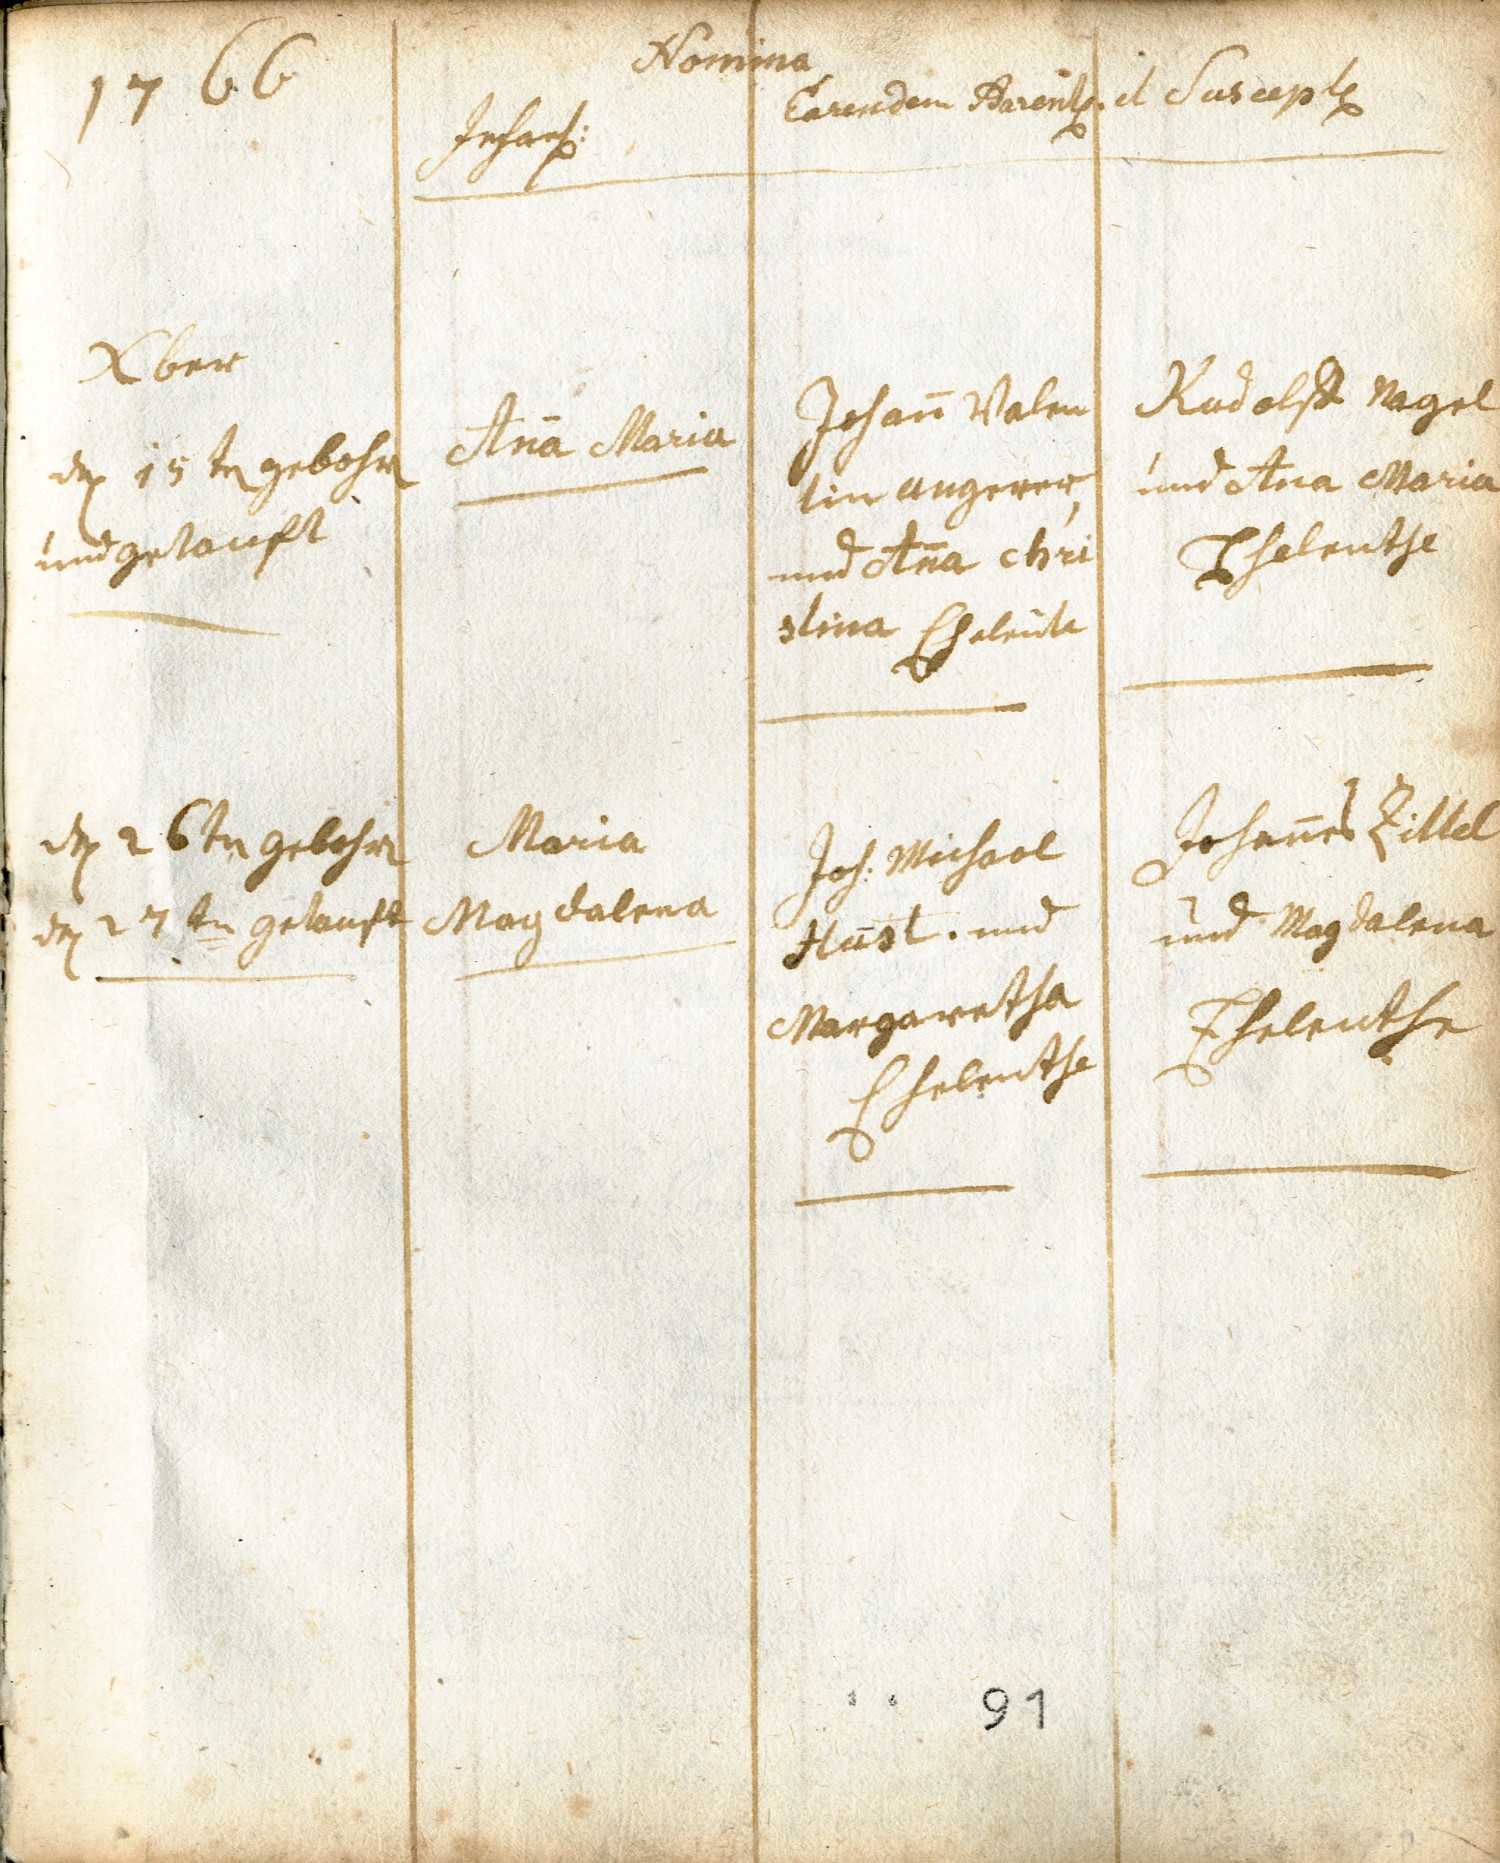 1766
Nomina
Infant:
Earundem Parent. et Suscept.
Xber
den 15ten gebohren
und getauft
Aña Maria
Johañ Valen
tin angerer,
und Aña Chri
stina Eheleute
Rudolff Nagel
und Ana Maria
Eheleuthe
den 26ten gebohren
den 27ten getauft
Maria
Magdalena
Joh: Michael
und
Margaretha
Eheleuthe
Johañes Zittel
und Magdalena
Eheleuthe
91